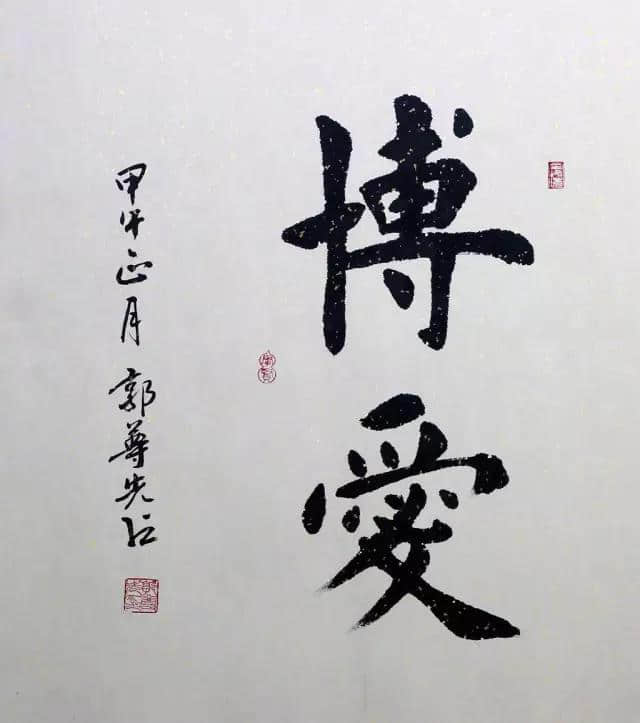 博愛
甲午正月 郭尊先